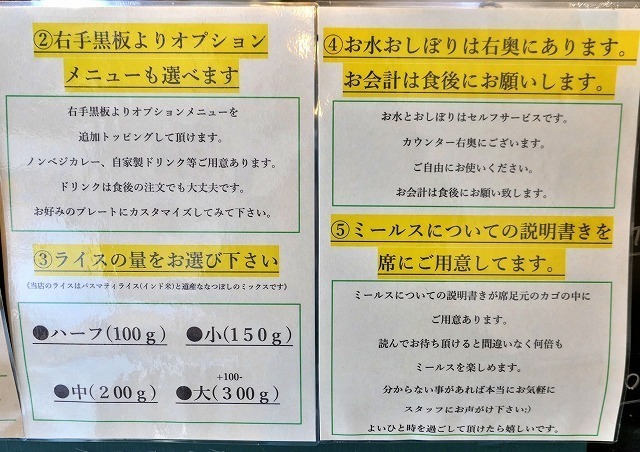 ②右手黒板よりオプション
メニューも選べます
右手黒板よりオプションメニューを
追加トッピングして頂けます。
ノンベジカレー、自家製ドリンク等ご用意あります。
ドリンクは食後の注文でも大丈夫です。
お好みのプレートにカスタマイズしてみて下さい。
③ライスの量をお選び下さい
《当店のライスはバスマティライス(インド米)と道産ななつぼしのミックスです》
●ハーフ(100g) ●小(150g)
+100-
●中(200g) ●大(300g)
④お水おしぼりは右奥にあります。
お会計は食後にお願いします。
お水とおしぼりはセルフサービスです。
カウンター右奥にございます。
ご自由にお使いください。
お会計は食後にお願い致します。
⑤ミールスについての説明書きを
席にご用意してます。
ミールスについての説明書きが席足元のカゴの中に
ご用意あります。
読んでお待ち頂けると間違いなく何倍も
ミールスを楽しめます。
分からない事があれば本当にお気軽に
スタッフにお声がけ下さい:)
よいひと時を過ごして頂けたら嬉しいです。